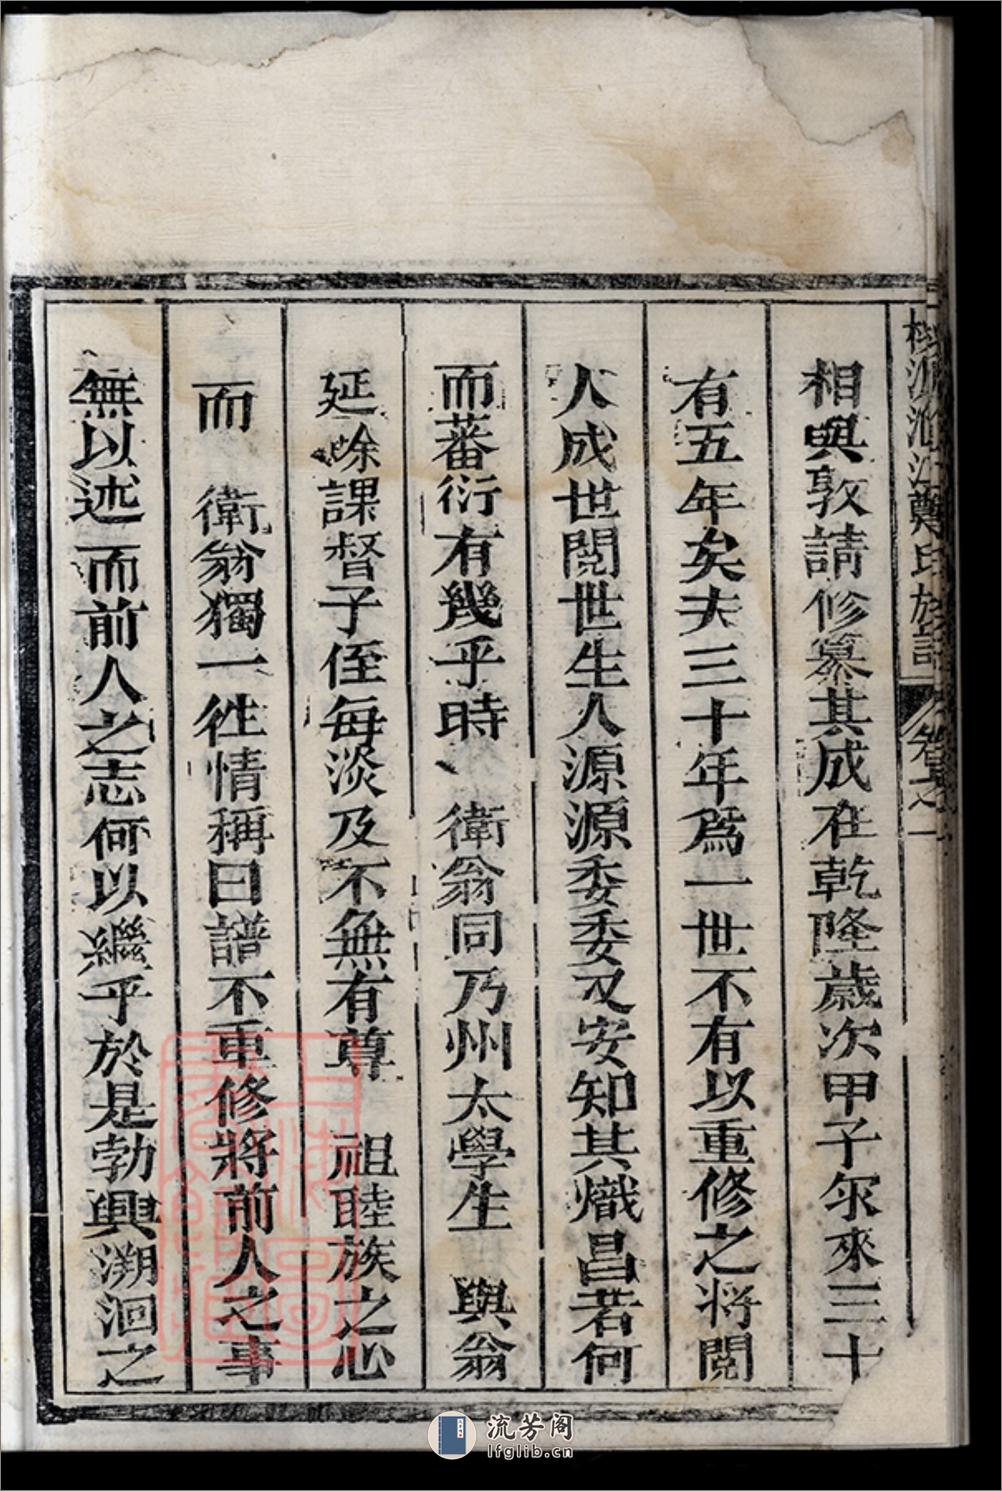 相與敦請修纂其成在乾隆歲次甲子尔來三十
有五年矣夫三十年爲一世不有以重修之将閱
人成世閱世生人源源委委又安知其熾昌若何
而蕃衍有幾乎時 衛翁同乃州太學生 與翁
延除課督子侄每淡及不無有尊 祖睦族之心
而 衛翁獨一徃情稱曰譜不重修將前人之事
無以述而前人之志何以繼乎於是勃興溯洄之
江鄭氏族譜 卷之一
流芳阁
lfglib.cn